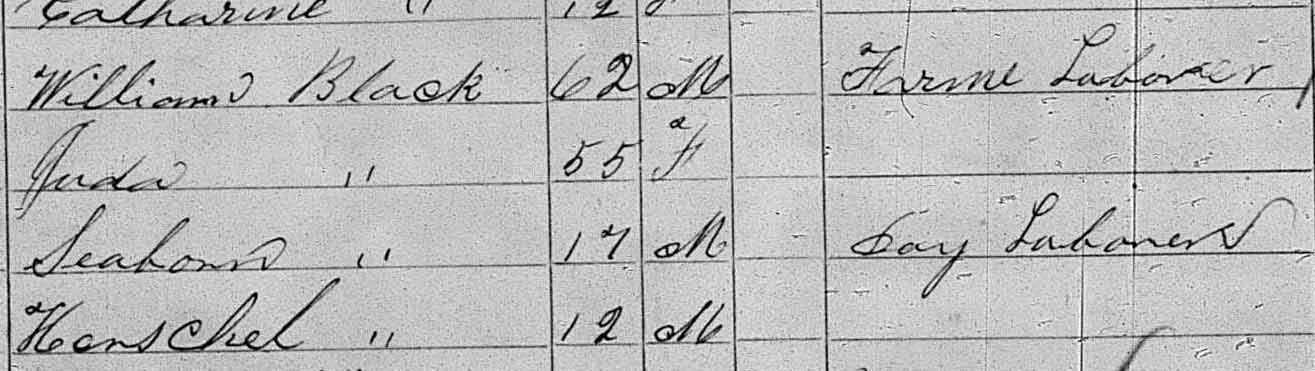 Catharine " 12 F
William Black 62 M Farme Laborer
Juda " 55 F
Seaborn " 17 M Day Laborer
Henschel " 12 M